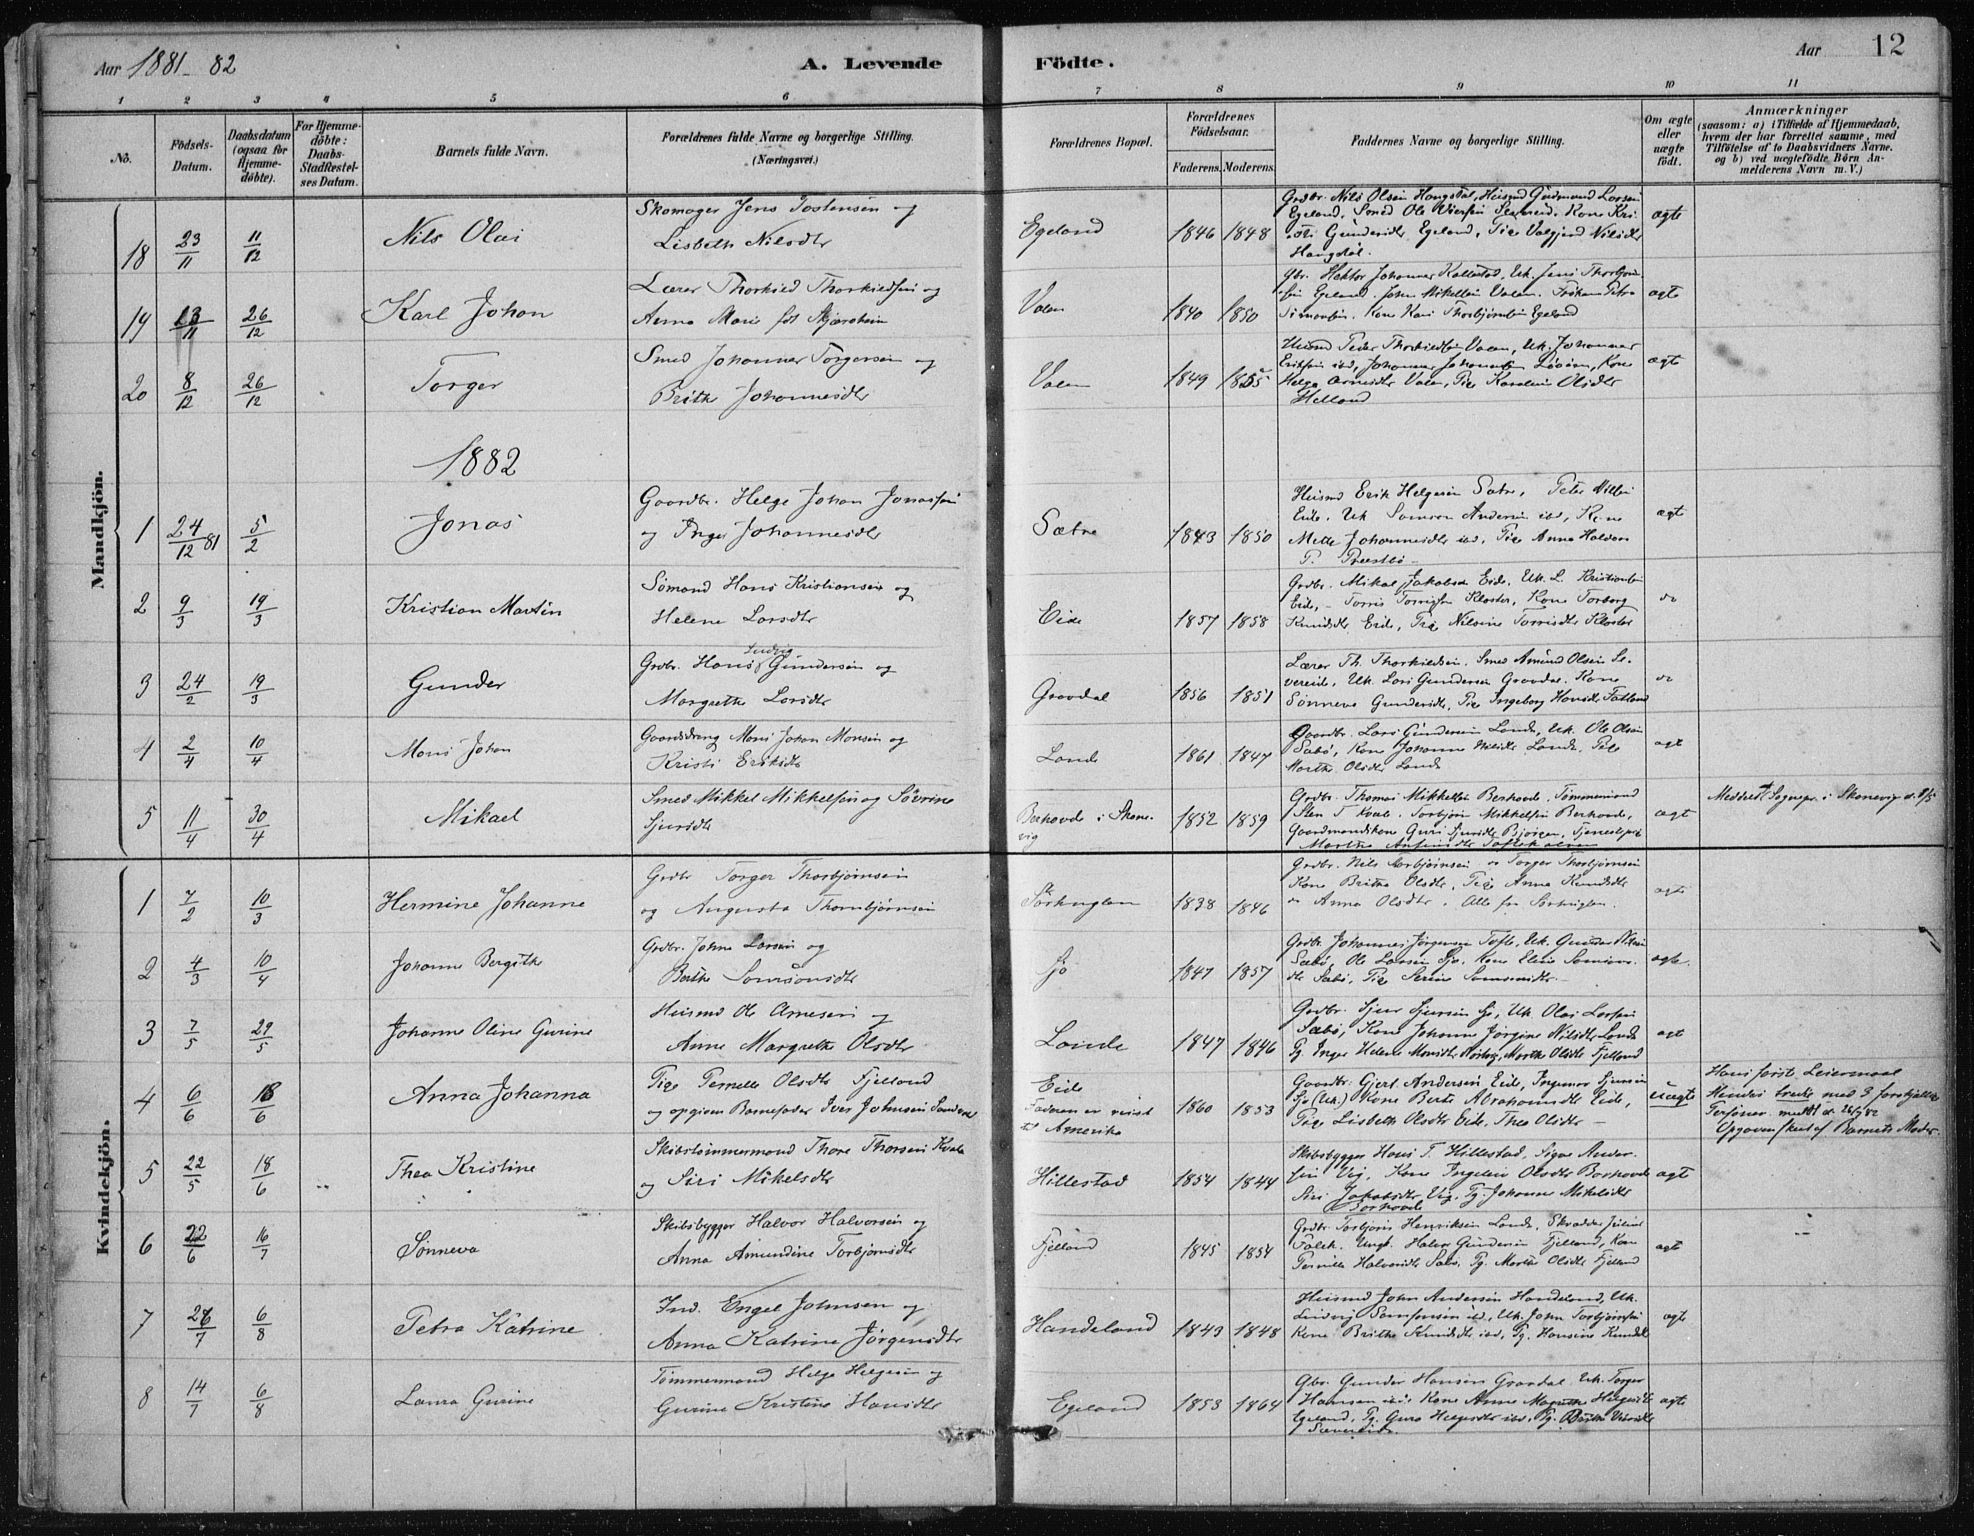 Aar 1881-82
A. Levende Födte.
Aar 12
1 2 3 4 5 6 7 8 9 10 11
No.
Födsels-Datum.
Daabsdatum (ogsaa for Hjemme-döbte).
For Hjemme-döbte: Daabs-Stadfæstel-ses Datum.
Barnets fulde Navn.
Forældrenes fulde Navne og borgerlige Stilling. (Næringsvei.)
Forældrenes Bopæl.
Forældrenes Födselsaar.
Faderens. Moderens.
Faddernes Navne og borgerlige Stilling.
Om ægte eller uægte födt.
Anmærkninger
(saasom: a) i Tilfælde af Hjemmedaab,
hvem der har forrettet samme, med
Tilföielse af to Daabsvidners Navne.
og b) ved uægtefödte Börn An-
melderens Navn m.V.)
Mandkjön.
18 23/11 11/12 Nils Olai
Skomager Jens Tostensen og
Lisbeth Nilsdtr
Egeland 1846 1848
Grdbr. Nils Olsen Haugstøl, Husmd Gudmund Larsen
Egeland, Smed Ole
Gundersdtr Egeland, Pige Valgjerd Nilsdtr
Haugstøl.
ægte
19 13/11 26/12 Karl Johan
Lærer Thorkild Thorkildsen og
Anna Marie født
Valen 1840 1850
Egeland. John Mikkelsen Valen. Frøken Petra
Simonsen. Kone Kari Thorbjørnsen Egeland
ægte
20 8/12 26/12 Torger
Smed Johannes Torgersen og
Brithe Johannesdtr
Valen 1849 1855
Husmd Peder Thorkildsen Valen, Uk. Johannes
Eriksen ibd, Johannes Johannesen, Kone
Helga Arnesdtr Valen, Pige Karoline Olsdtr
Helland
ægte
1882
1 24/12 81 5/2 Jonas
Gaardbr. Helge Johan Jonassen
og Inger Johannesdtr
Sætre 1843 1850
Husmd Erik Helgesen Sætre, Peter Nilsen
Eide, Uk Samson Andersen ibd, Kone
Mette Johannesdtr ibd, Pige Anna Halvors
P. Præstbø
ægt
2 9/3 19/3 Kristian Martin
Sømand Hans Kristiansen og
Helene Larsdtr
Eide 1857 1858
Grdbr. Mikal Jakobsen Eide, Uk. L. Kristiansen
Eide, Torris Torrisen Kloster, Kone Torborg
Knudsdtr Eide, Pige Nilsine Torrisdtr Kloster
do
3 24/2 19/3 Gunder
Grdbr. Hans Ludvig Gundersen og
Margrethe Larsdtr
Gravdal 1856 1851
Lærer Th. Thorkildsen. Smed Amund Olsen Se-
vereide, Uk. Lars Gundersen Gravdal. Kone
Sønneva Gundersdtr, Pige Ingeborg Hansdtr Fatland
do
4 2/4 10/4 Mons Johan
Gaardsdreng Mons Johan Monsen og
Kristi Eriksdtr
Lande 1861 1847
Gaardbr. Lars Gundersen Lande, Uk. Ole Olsen
Sæbø, Kone Johanne Nilsdtr Lande, Pige
Marthe Olsdtr Lande
ægt
5 11/4 30/4 Mikael
Smed Mikkel Mikkelsen og Søvrine
Sjursdtr
Berhovde i Skone-
vig
1852 1859
Grdbr. Thomas Mikkelsen Berhovde, Tømmermand
Sten T. Kvale. Torbjørn Mikkelsen Berhovde,
Gaardmandskone Guri Sjursdtr Bjørgen, Tjenestepige
ægt
Meddelt Sognepr. i Skonevig d. 8/5
Kvindekjön.
1 7/2 10/3 Hermine Johanne
Grdbr Torger Thorbjørnsen
og Augusta Thorbjørnsen
1838 1846
Grdbr. Nils Torbjørnsen, Torger Thorbjørnsen
Kone Brithe Olsdtr, Pige Anna Knudsdtr
Anna Olsdtr. Alle fra
ægte
2 4/3 10/4 Johanne Bergithe
Grdbr. Johne Larsen og
Berthe Samsonsdtr
Sjo 1847 1857
Grdbr. Johannes Jørgensen Tofte, Uk. Gunder Nilsen
Sæbø, Ole Larsen Sjo, Kone Eline Samsons-
dtr Sæbø, Pige Serine Samsonsdtr
ægte.
3 7/5 29/5 Johanne Oline Gurine
Husmd Ole Arnesen og
Anne Margrethe Olsdtr
Lande 1847 1846
Grdbr. Sjur Sjursen Sjo, Uk. Olai Larsen
Sæbø, Kone Johanne Jørgine Nilsdtr Lande
Pg. Inger Helene Monsdtr, Marthe Olsdtr Fjelland
ægt
4 6/6 18/6 Anna Johanna
Pige Pernille Olsdtr Fjelland
og opgiven Barnefader Iver Johnsen
Eide
Faderen er reist
til Amerika
1860 1853
Gaardbr. Gjert Andersen Eide, Ingemar Sjursen
Sjo (Uk.) Kone Berte Abrahamsdtr Eide,
Pige Lisbeth Olsdtr Eide, Thea Olsdtr —
uægte
Hans første Leiermaal
Hendes tredie med 3 forskjellige
Personer meddt d. 26/7 82
Opgaven skeet af Barnets Moder.
5 22/5 18/6 Thea Kristine
Skibstømmermand Thore Thorsen Kvale
og Siri Mikelsdtr
Hillestad 1854 1844
Skibsbygger Hans T. Hillestad, Ander-
sen Vig, Kone Ingeleiv Olsdtr Borhovde
Siri Jakobsdtr Vig, Pg. Johanne Mikelsdtr
Borhovde
ægt
6 22/6 16/7 Sønneva
Skibsbygger Halvor Halvorsen og
Anna Amundine Torbjørnsdtr
Fjelland 1845 1854
Grdbr. Torbjørn Henriksen Lande, Skrædder
Falck. Ungk. Halvor Gundersen Fjelland, Kone
Pernille Halvorsdtr Sæbø, Pg. Marthe Olsdtr Fjelland
ægt
7 28/7 6/8 Petra Katrine
Ind. Engel Johnsen og
Anna Katrine Jørgensdtr
Handeland 1849 1848
Husmd John Andersen Handeland, Uk.
Ludvig Samsonsen ibd, Uk. John Torbjørnsen
Kone Brithe Knudsdtr ibd, Pg. Hansine Knudsdtr
ægt
8 14/7 6/8 Laura Gurine
Tømmermand Helge Helgesen og
Gurine Kristine Hansdtr
Egeland 1853 1864
Gbr. Gunder Hansen Gravdal Uk. Torger
Hansen ibd. Kone Anne Margrethe Helgesdtr
Egeland, Pg. Guro Helgesdtr ibd, Pg. Brithe
ægte